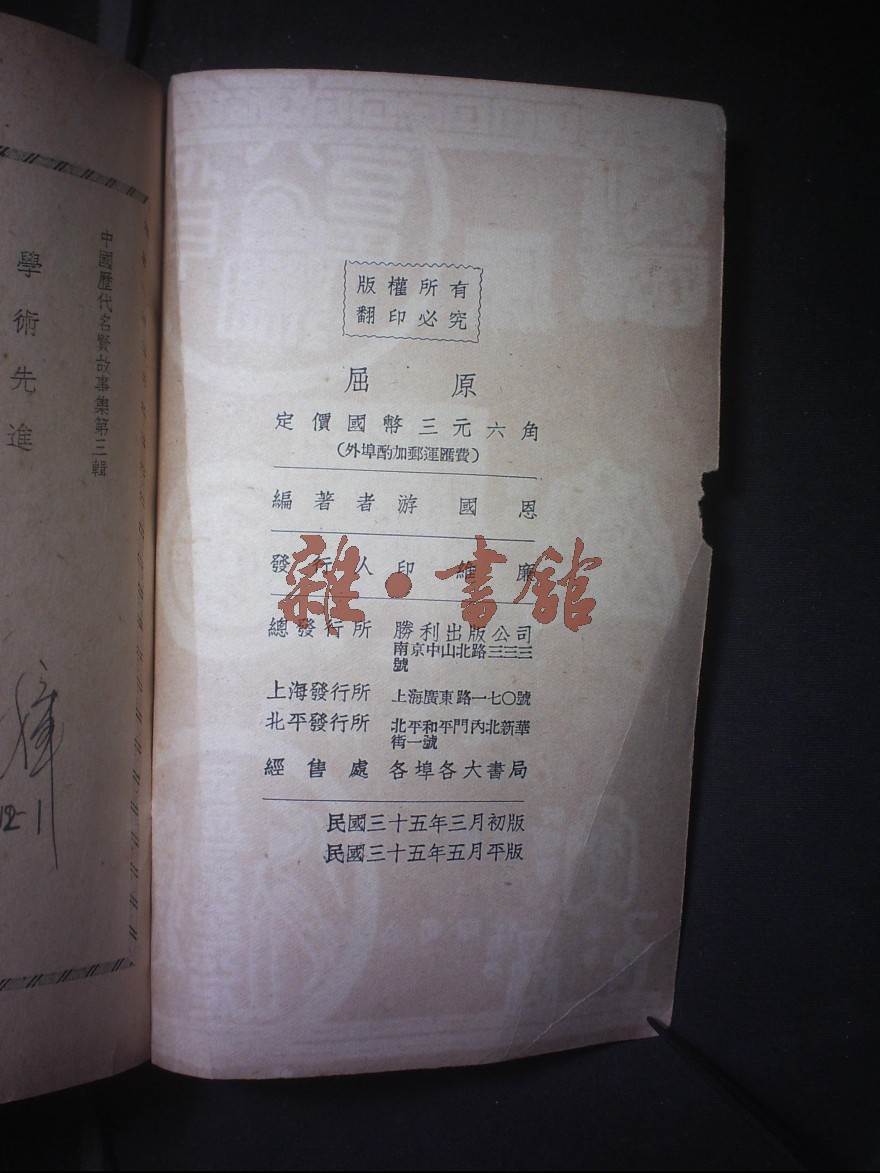 中國歷代名賢故事集第三輯
學術先進
12-1
版權所有
翻印必究
屈原
定價國幣三元六角
(外埠酌加郵運匯費)
編著者 游國恩
發行人 印維廉
雜·書館
總發行所 勝利出版公司
南京中山北路三三三
號
上海發行所 上海廣東路一七〇號
北平發行所 北平和平門內北新華
街一號
經售處 各埠各大書局
民國三十五年三月初版
民國三十五年五月平版